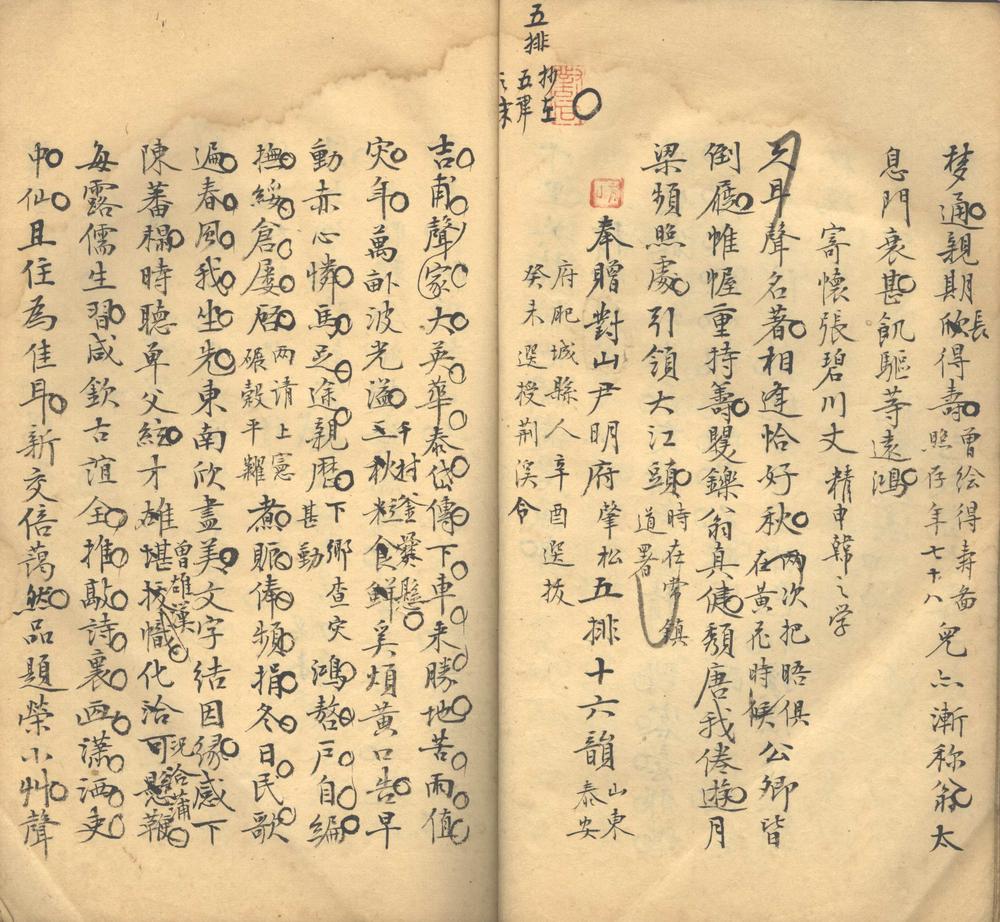 五排
抄在
五律
之末
梦通親期欣長得壽曾绘得寿圖照存年七十八兒亦漸称翁太
息門衰甚飢驅等遠鴻
寄懷張碧川丈精申韓之学
久耳聲名著相逢恰好秋兩次把晤俱在黄花時候公卿皆
倒屣帷幄重持籌矍鑠翁真健頹唐我倦遊月
梁頻照處引領大江頭時在常鎮道署
奉贈對山尹明府肇松五排十六韻山東泰安
府肥城縣人辛酉選拔
癸未選授荆溪令
吉甫聲家大英華泰岱傳下車来勝地苦雨值
灾年萬畝波光溢千村釜爨懸三秋粒食鮮奚煩黄口告早
動赤心憐馬足途親歴下鄉查灾甚勤鴻嗸户自編
撫綏倉屡厫兩請上憲碾穀平糶煮賑俸頻捐冬日民歌
遍春風我坐先東南欣盡美文字結因缘感下
陳蕃榻時聽单父絃才雄堪拔幟曾雄漢化洽可懸鞭況洽蒲
每露儒生習咸欽古誼全推敲詩裏画潇洒吏
中仙且住為佳耳新交倍蔼然品題榮小艸聲